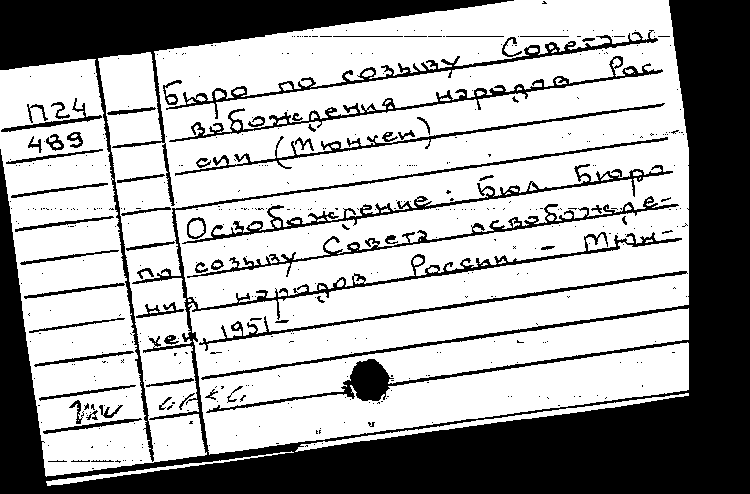 П24
489
Бюро по созыву Совета ос
вобождения народов Рос
сии (Мюнхен)
Освобождение: Бюл. Бюро
по созыву Совета освобожде-
ния народов России. - Мюн-
хен, 1951-